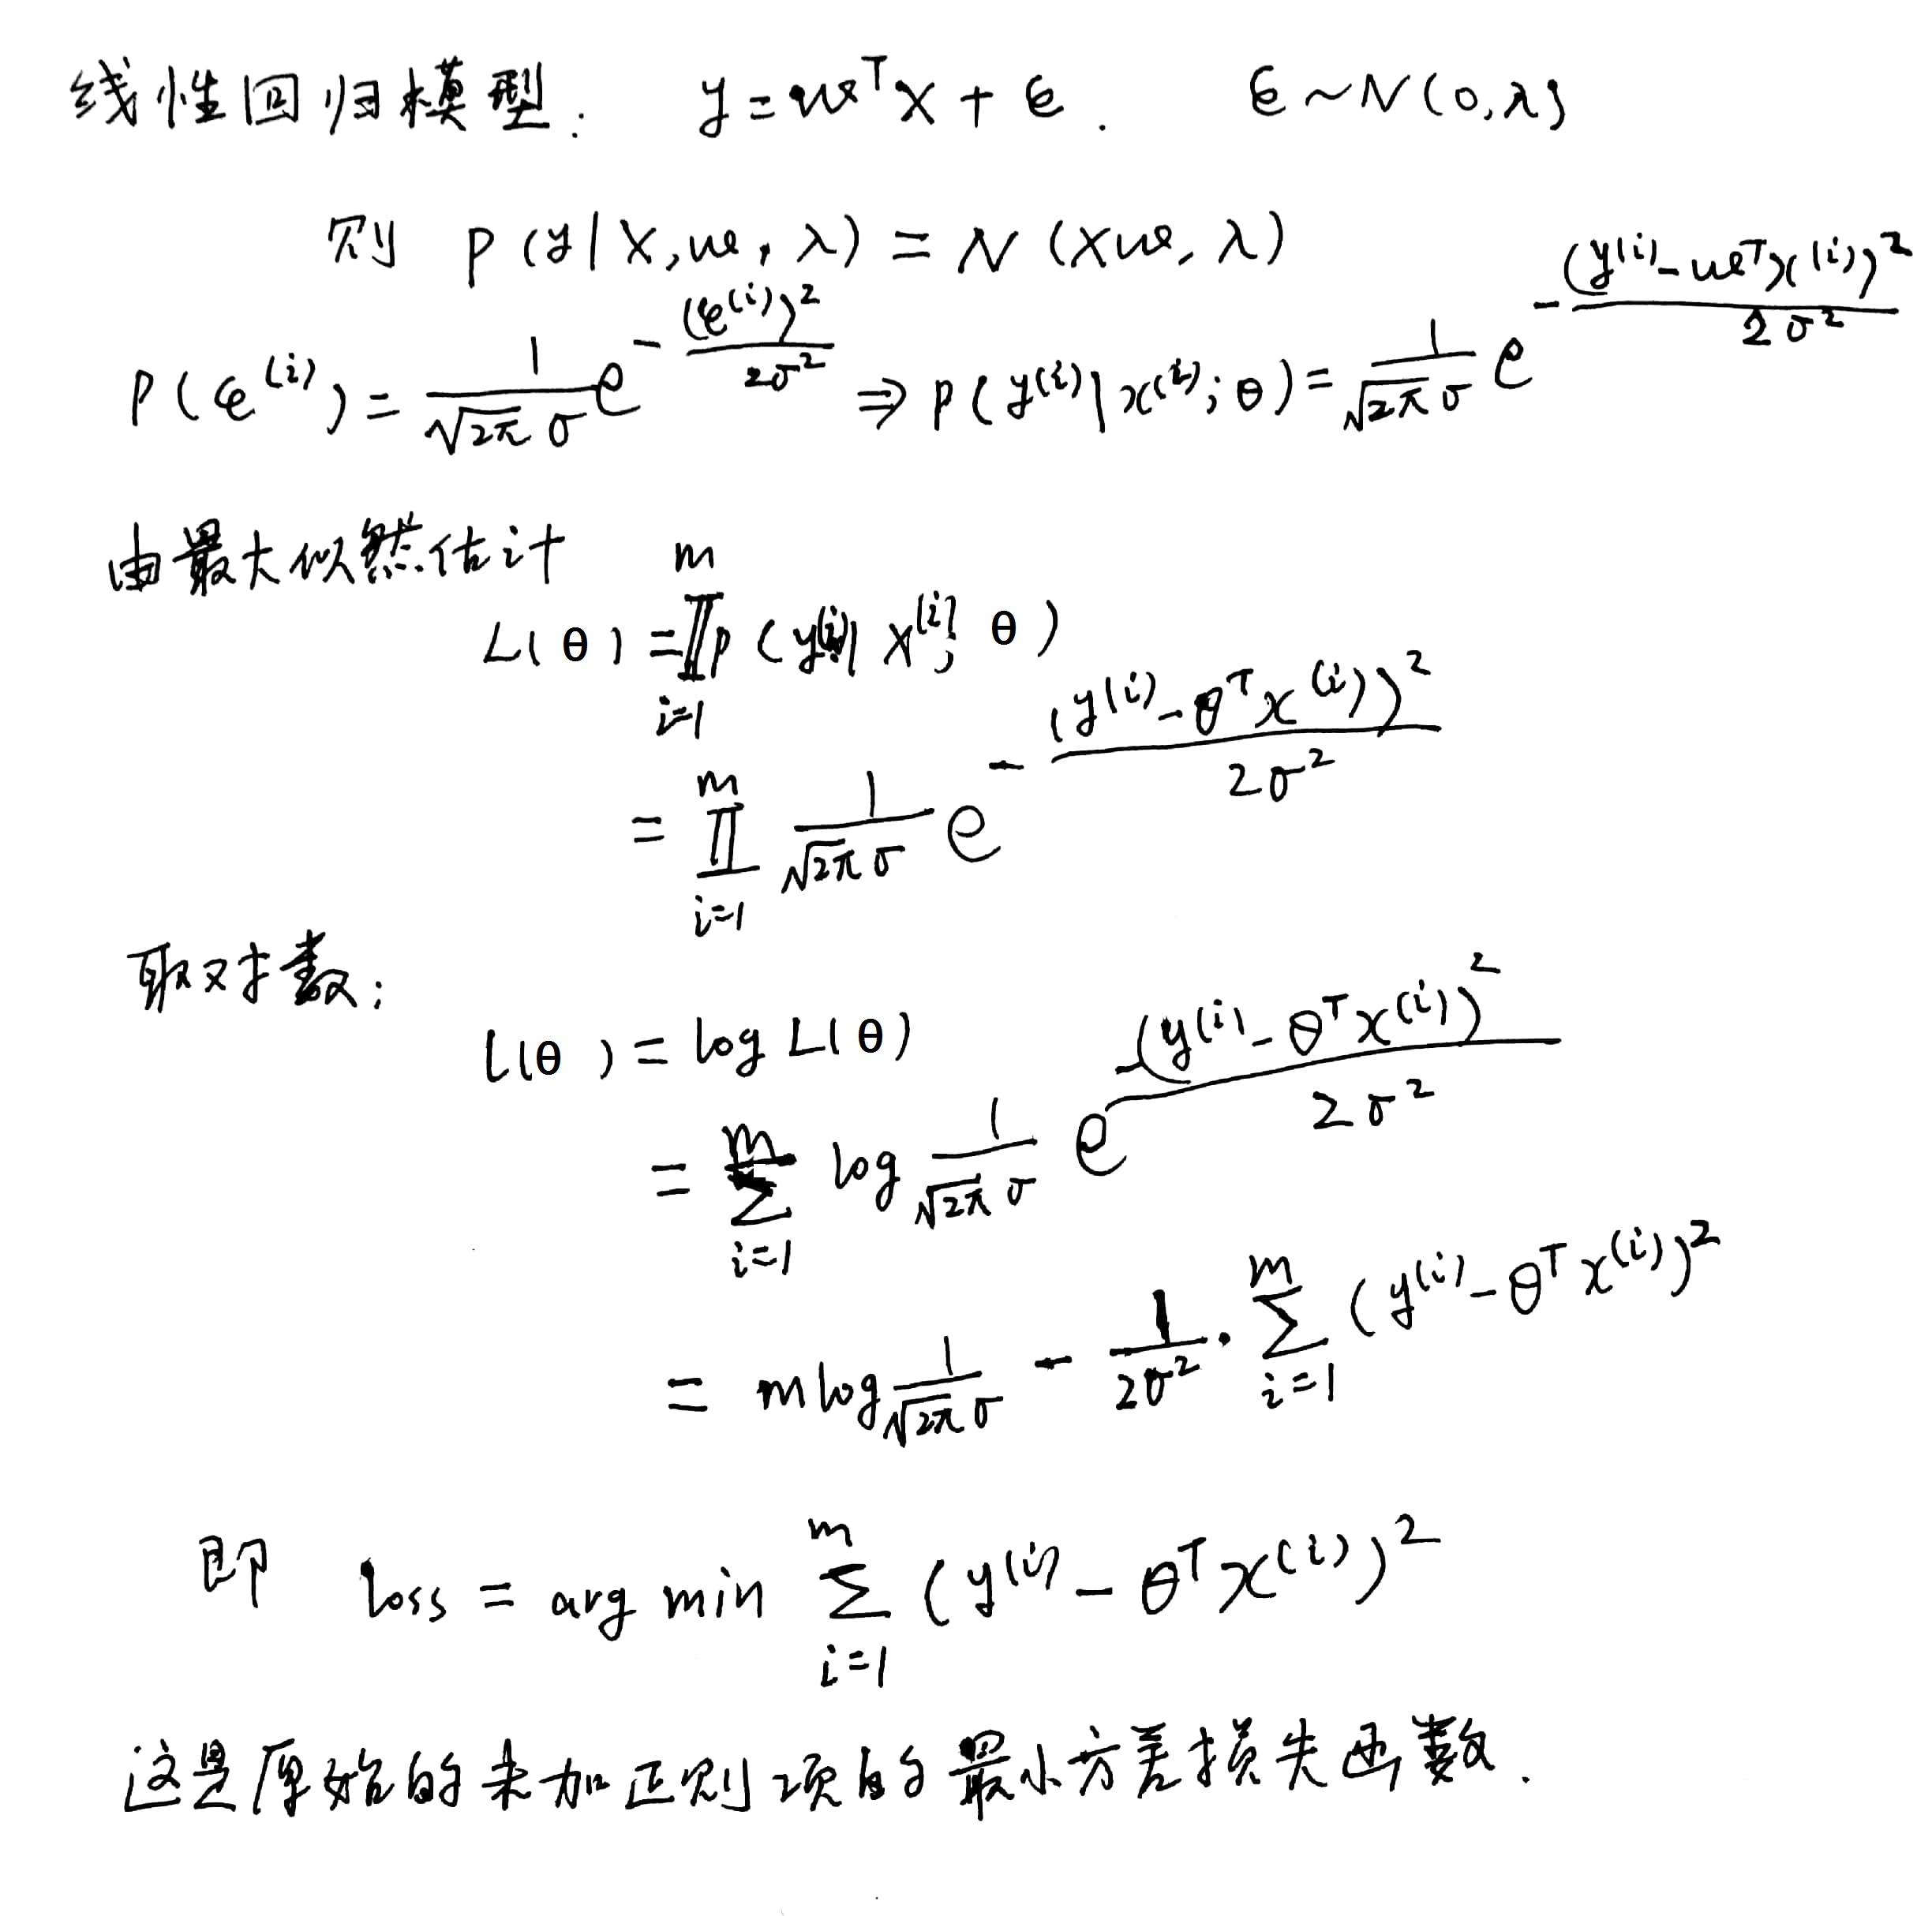 线性回归模型: y = wᵀx + ϵ. ϵ ~ N(0,λ)
则 P(y|X,w,λ) = N(Xw,λ)
P(ϵ^{(i)}) = \frac{1}{\sqrt{2π}σ} e^{-\frac{(ϵ^{(i)})^2}{2σ^2}} ⇒ P(y^{(i)}|x^{(i)};θ) = \frac{1}{\sqrt{2π}σ} e^{-\frac{(y^{(i)}-w^Tx^{(i)})^2}{2σ^2}}
由最大似然估计
L(θ) = \prod_{i=1}^{m} P(y^{(i)}|x^{(i)};θ)
= \prod_{i=1}^{m} \frac{1}{\sqrt{2π}σ} e^{-\frac{(y^{(i)}-θ^Tx^{(i)})^2}{2σ^2}}
取对数:
l(θ) = log L(θ)
= \sum_{i=1}^{m} log \frac{1}{\sqrt{2π}σ} e^{-\frac{(y^{(i)}-θ^Tx^{(i)})^2}{2σ^2}}
= m log \frac{1}{\sqrt{2π}σ} - \frac{1}{2σ^2} · \sum_{i=1}^{m} (y^{(i)}-θ^Tx^{(i)})^2
即 loss = arg min \sum_{i=1}^{m} (y^{(i)}-θ^Tx^{(i)})^2
这是原始的未加正则项的最小方差损失函数.